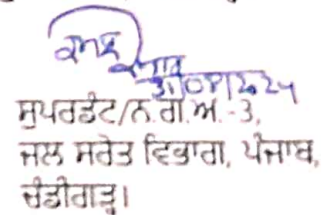 30/04/2024
ਸੁਪਰਡੰਟ/ਨ.ਗ.ਅ.-3,
ਜਲ ਸਰੋਤ ਵਿਭਾਗ, ਪੰਜਾਬ,
ਚੰਡੀਗੜ੍ਹ।